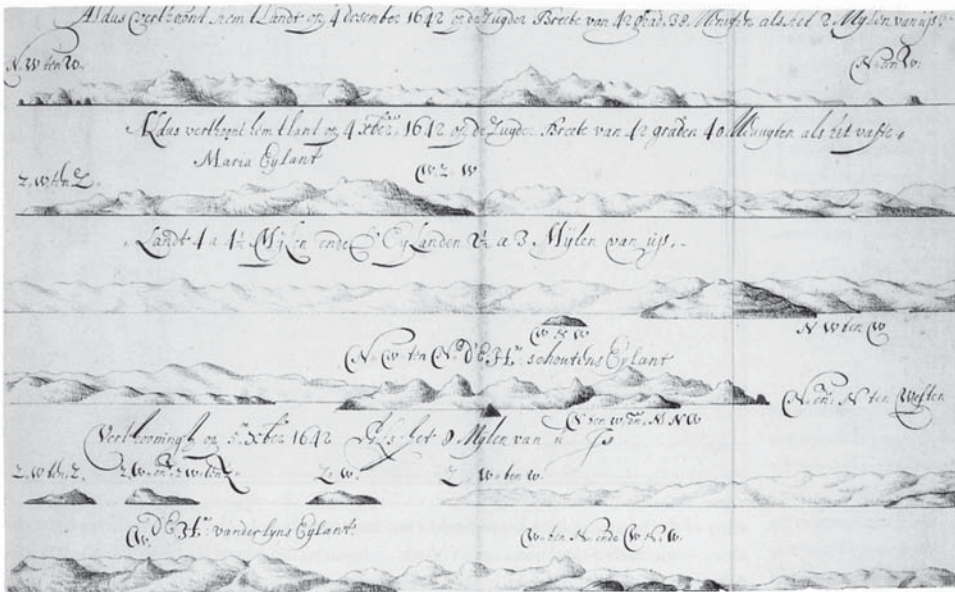 Aldus Verthoont hem t Landt op 4 desember 1642 op de Zuyder Breete van 42 grad. 38 Minuten als het 2 Mylen van u is
N. W ten W. N. ten W.
Aldus verthoont hem t lant op 4 xber 1642 op de Zuyder Breete van 42 graden 40 Minuyten als het vaste
Maria Eylant
Z. W ten Z. W. Z. W
Landt 4 a 4½ Mylen ende d' Eylanden 2½ a 3 Mylen van u is.
W N W N W ten W
N. W. ten N. d' E. Hr. schoutens Eylant
N. en N ten Westen
N ten W en N N W
Verthooningh op 5 xber 1642 Als het 8 Mylen van u is
Z. W ten Z. Z. W. Z. W. ten W.
d' E. Hr. vanderlyns Eylant
W. ten N. ende W. N. W.